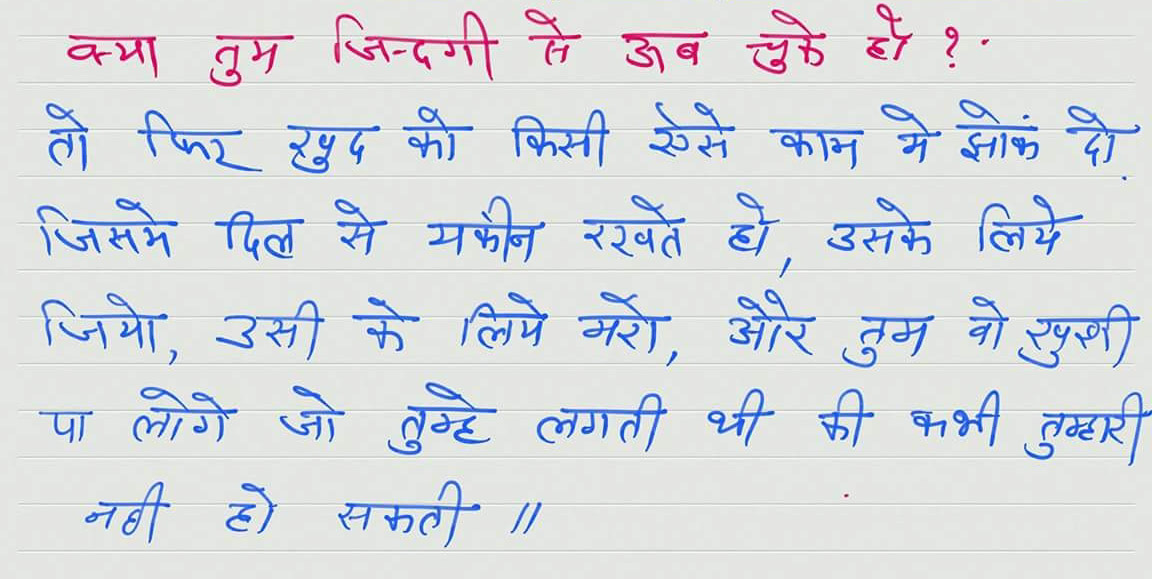 क्या तुम जिन्दगी से ऊब चुके हो ?
तो फिर खुद को किसी ऐसे काम मे झोकं दो
जिसमे दिल से यकीन रखते हो, उसके लिये
जियो, उसी के लिये मरो, और तुम वो खुशी
पा लोगे जो तुम्हे लगती थी की कभी तुम्हारी
नही हो सकती ॥